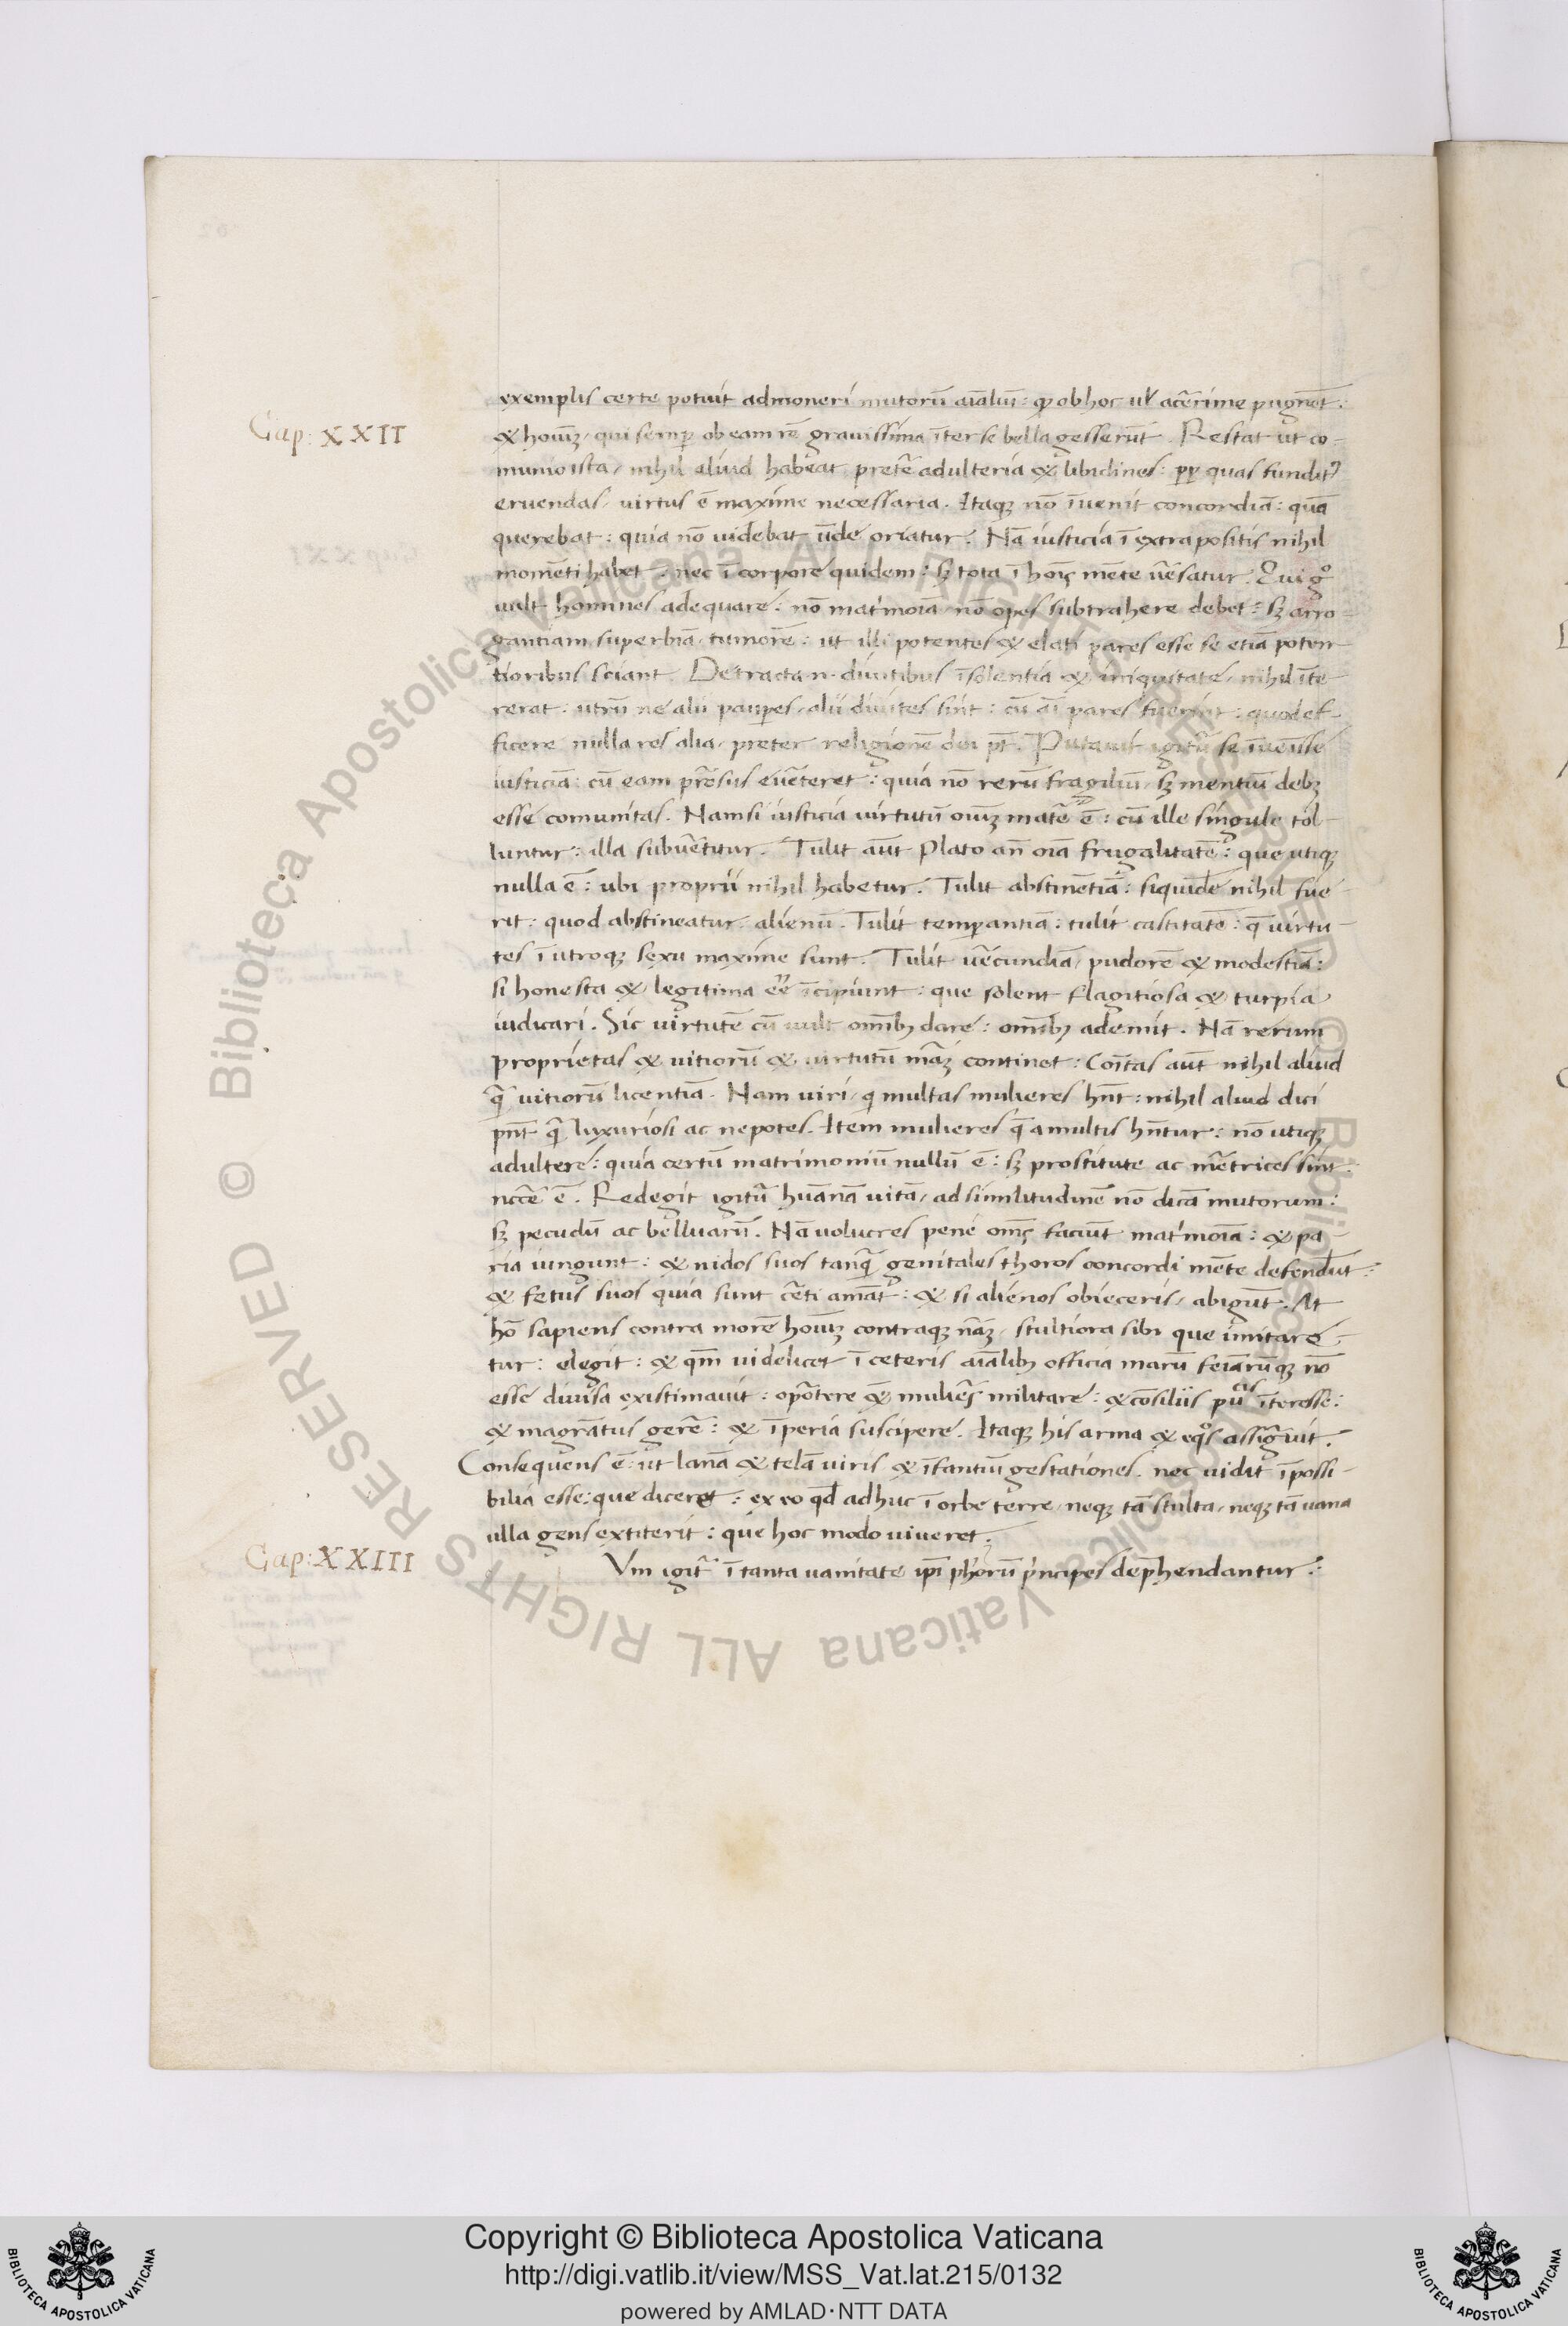 exemplis certe potuit admoneri mutorū aīaliū: qꝫ ob hoc ul' acērime pugnēt:
Cap: XXII
& hoīuꝫ, qui semꝑ ob eam rē gravissima īter se bella gesserūt. Restat ut co-
munio ista, nihil aliud habeat pretē adulteria & libidines: ꝓꝑ quas fundit⁹
eruendas, virtus ē maxime necessaria. Itaqꝫ nō īvenit concordiā: quā
querebat: quia nō videbat ūde oriatur. Nā iusticia ī extra positis nihil
momēti habet, nec ī corpore quidem: sꝫ tota ī hoīs mēte v̄satur. Qui gͦ
vult homines adequare: nō mat'moīa nō opes subtrahere debet: sꝫ arro-
gantiam superbiā tumorē: ut illi potentes & elati pares esse se etiā poten-
tioribus sciant. Detracta .n. divitibus īsolentia & iniquitate, nihil īte-
rerat: utrū ne alii pauꝑes, alii divites sint: cū aī pares fuerint: quod ef-
ficere nulla res alia, preter religionē dei pt̄. Putavit igit̄ se īvēisse
iusticiā: cū eam prōsus ev̄teret: quia nō rerū fragiliū, sꝫ mentiū debꝫ
esse comunitas. Nam si iusticia virtutū oīuꝫ matē ē: cū ille singule tol-
luntur: illa subv̄titur. Tulit aūt Plato añ oīa frugalitatē: que utiqꝫ
nulla ē: ubi proprii nihil habetur. Tulit abstinētiā: siquidē nihil fue-
rit: quod abstineatur alienū. Tulit temꝑantiā: tulit castitatē: q̄ virtu-
tes ī utroqꝫ sexu maxime sunt. Tulit v̄ecundiā, pudorē & modestiā:
si honesta & legitima eē īcipiunt: que solent flagitiosa & turpia
iudicari. Sic virtutē cū vult omībꝫ dare: omībꝫ ademit. Nā rerum
proprietas & vitiorū & virtutū māꝫ continet: Coītas aūt nihil aliud
q̄ vitiorū licentiā. Nam viri, q multas mulieres hn̄t: nihil aliud dici
pn̄t q̄ luxuriosi ac nepotes. Item mulieres q̄ a multis hn̄tur: nō utiqꝫ
adultere: quia certū matrimoniū nullū ē: sꝫ prostitute ac mētrices sint
nccē ē. Redegit igit̄ huānā vitā, ad similitudinē nō dicā mutorum:
sꝫ pecudū ac belluarū. Nā volucres pene oms̄ faciūt mat'moīa: & pa-
ria iungunt: & nidos suos tanq̄ genitales thoros concordi mēte defendūt:
& fetus suos quia sunt cēti amāt: & si alienos obieceris, abigūt. At
hō sapiens contra morē hoīuꝫ contraqꝫ nāꝫ, stultiora sibi que imitare-
tur: elegit: & qm̄ videlicet ī ceteris aīalibꝫ officia marū feīarūqꝫ nō
esse div̄sa existimavit: opōtere & muliēs militare: & cōsiliis puᵇˡⁱᶜⁱˢ īteresse:
& magrātus gerē: & īperia suscipere. Itaqꝫ his arma & eqͦs assigvit.
Consequens ē: ut lanā & telā viris & īfantiū gestationes. nec vidit īpossi-
bilia esse: que diceret: ex eo qd̄ adhuc ī orbe terre, neqꝫ tā stulta, neqꝫ tā vana
ulla gens extiterit: que hoc modo viveret.
Cap: XXIII
Vm igit̄ ī tanta vanitate ipī ph'orū prīncipes dep̄hendantur:
© Biblioteca Apostolica Vaticana ALL RIGHTS RESERVED © Biblioteca Apostolica Vaticana ALL RIGHTS RESERVED
Copyright © Biblioteca Apostolica Vaticana
http://digi.vatlib.it/view/MSS_Vat.lat.215/0132
powered by AMLAD·NTT DATA
BIBLIOTECA APOSTOLICA VATICANA
BIBLIOTECA APOSTOLICA VATICANA